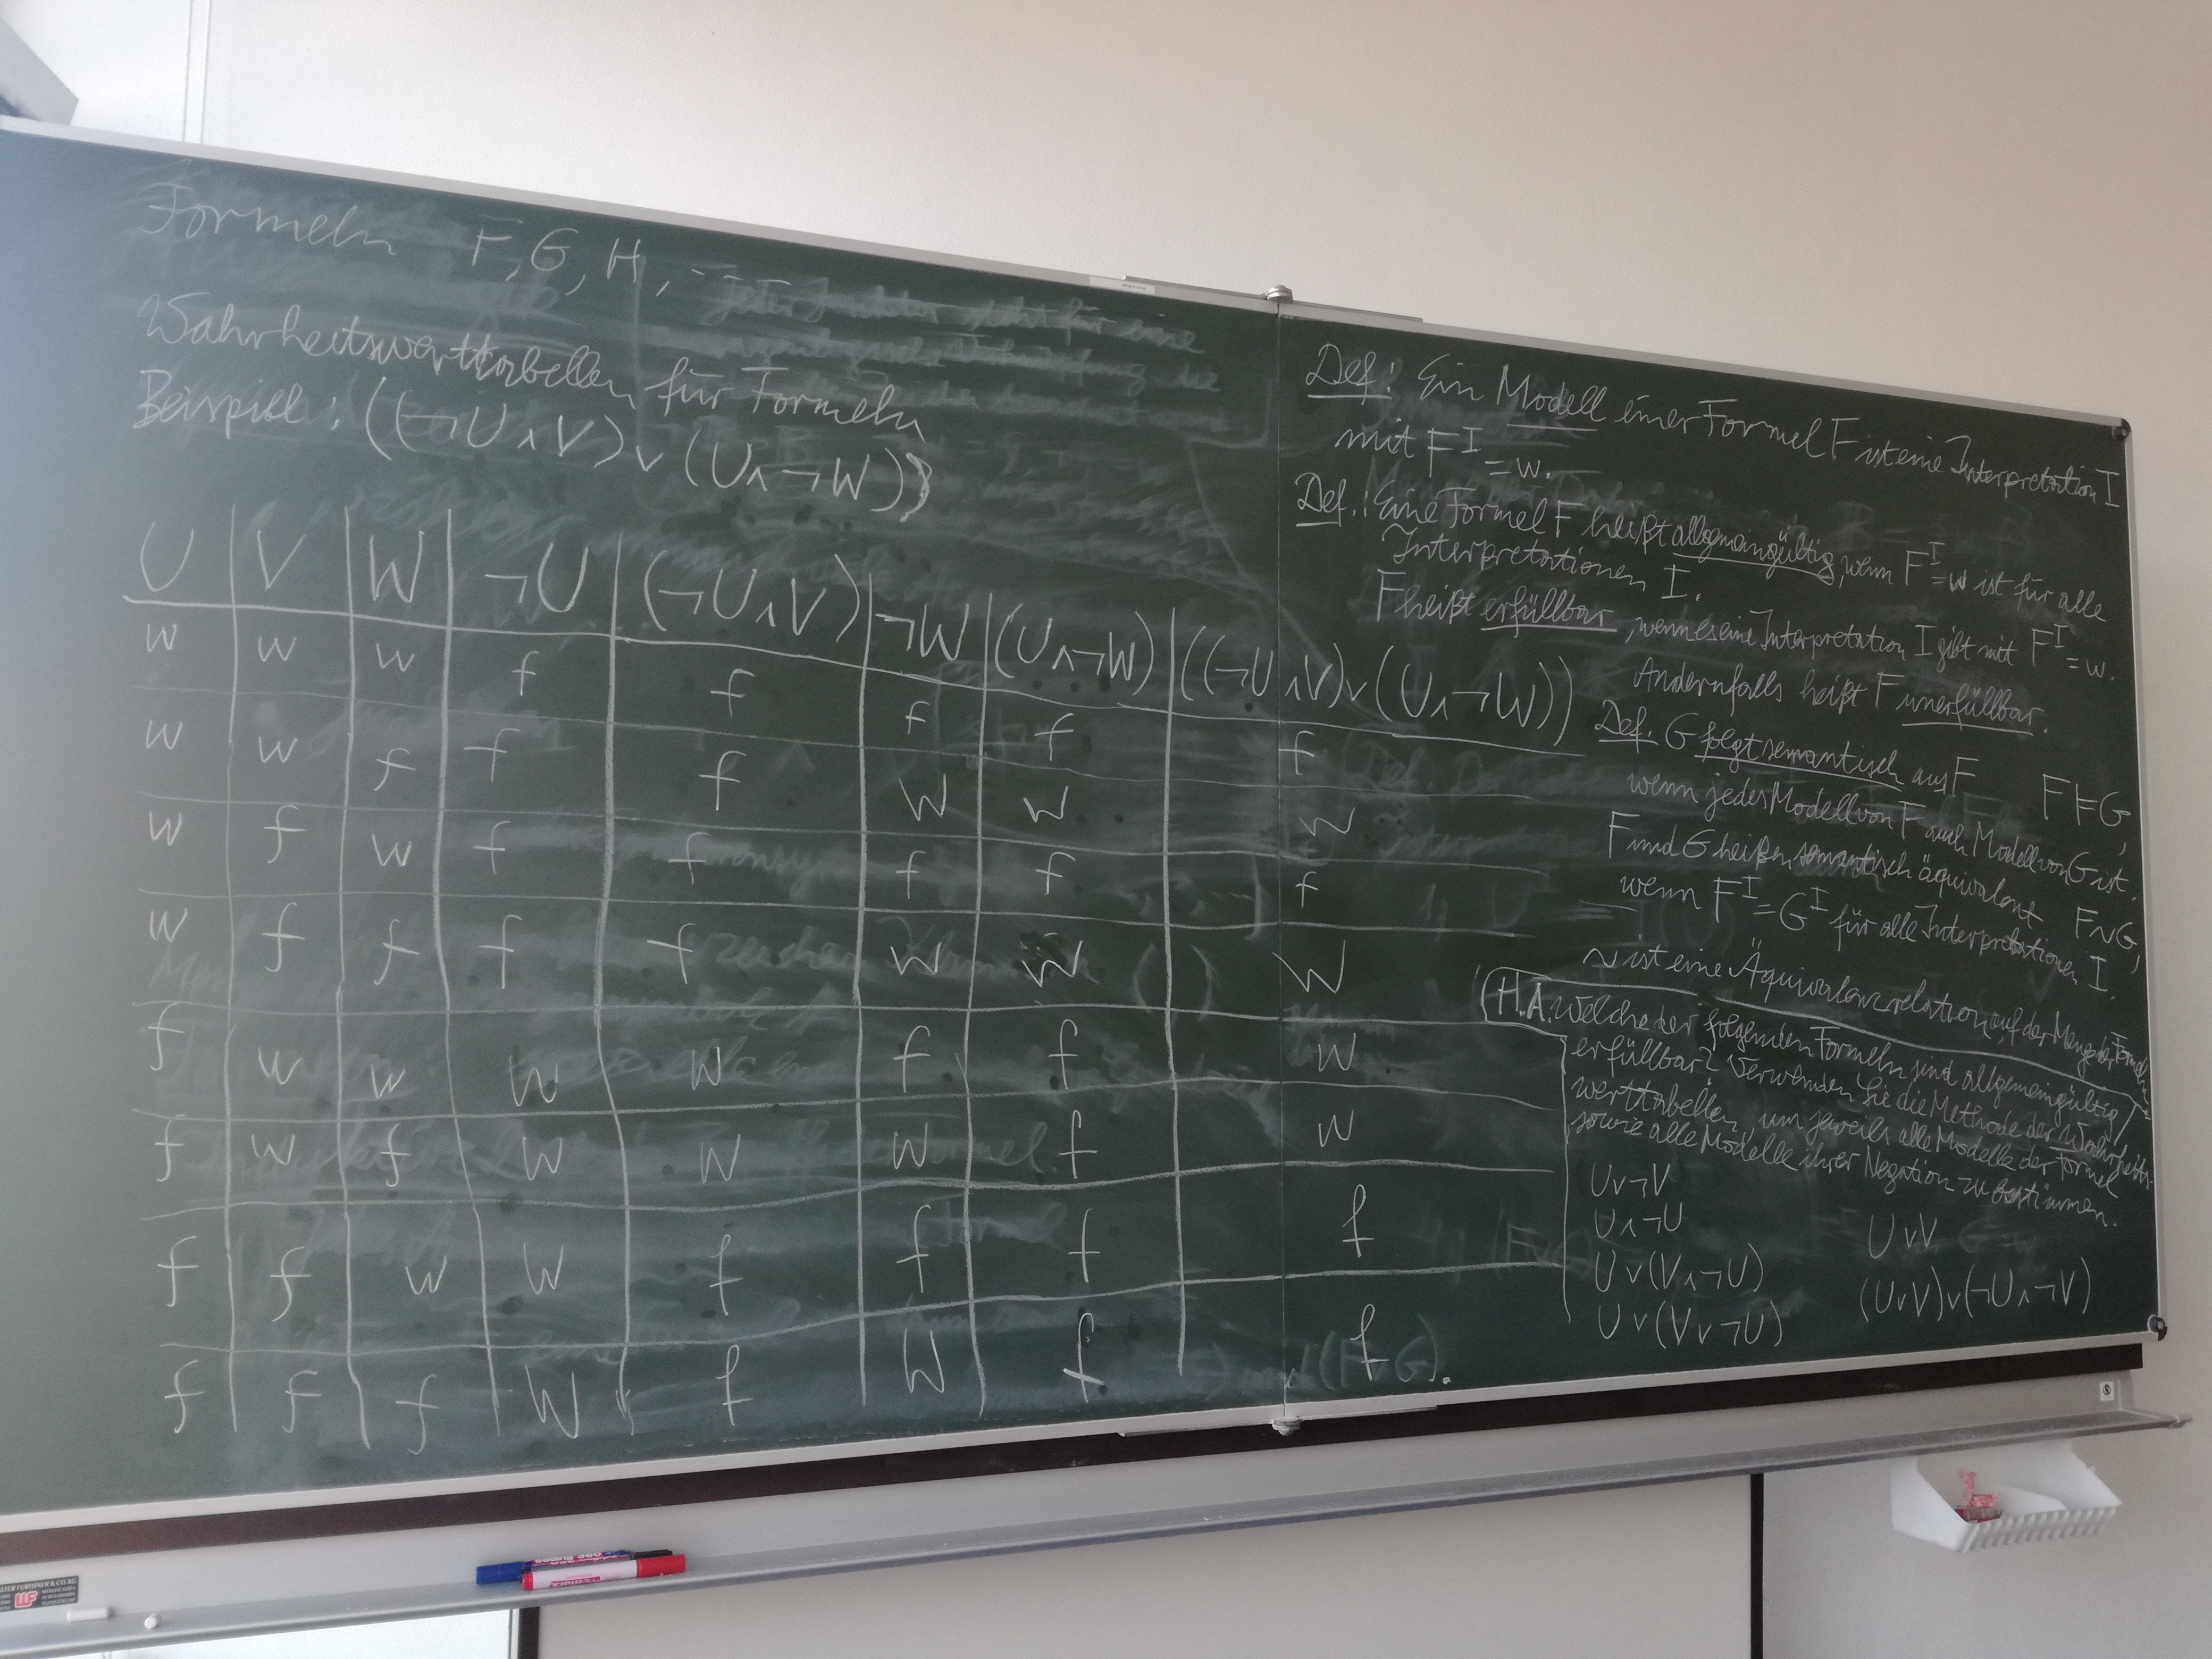 Formeln F, G, H, ...
Wahrheitswerttabellen für Formeln
Beispiel: ((¬U∧V)∨(U∧¬W))
U V W ¬U (¬U∧V) ¬W (U∧¬W) ((¬U∧V)∨(U∧¬W))
w w w f f f f f
w w f f f w w w
w f w f f f f f
w f f f f w w w
f w w w w f f w
f w f w w w f w
f f w w f f f f
f f f w f w f f
Def.: Ein Modell einer Formel F ist eine Interpretation I
mit F^I = w.
Def.: Eine Formel F heißt allgemeingültig, wenn F^I = w ist für alle
Interpretationen I.
F heißt erfüllbar, wenn es eine Interpretation I gibt mit F^I = w.
Andernfalls heißt F unerfüllbar.
Def. G folgt semantisch aus F F ⊨ G,
wenn jedes Modell von F auch Modell von G ist.
F und G heißen semantisch äquivalent F ~ G,
wenn F^I = G^I für alle Interpretationen I.
~ ist eine Äquivalenzrelation auf der Menge der Formeln
H.A. Welche der folgenden Formeln sind allgemeingültig/
erfüllbar? Verwenden Sie die Methode der Wahrheits-
werttabellen um jeweils alle Modelle der Formel
sowie alle Modelle ihrer Negation zu bestimmen.
U∨¬V
U∧¬U U∨V
U∨(V∧¬U) (U∨V)∨(¬U∧¬V)
U∨(V∨¬U)